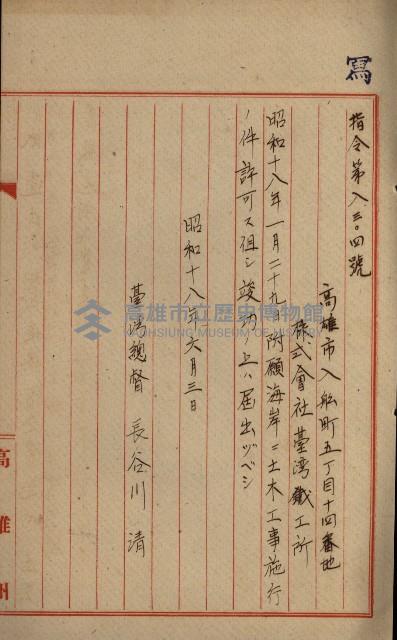 寫
指令第八三〇四號
高雄市入船町五丁目十四番地
株式會社臺湾鐵工所
昭和十八年一月二十九日附願海岸ニ土木工事施行
ノ件許可ス但シ竣功ノ上ハ届出ヅベシ
昭和十八年六月三日
臺湾總督 長谷川 清
高雄州
高雄市立歷史博物館
KAOHSIUNG MUSEUM OF HISTORY